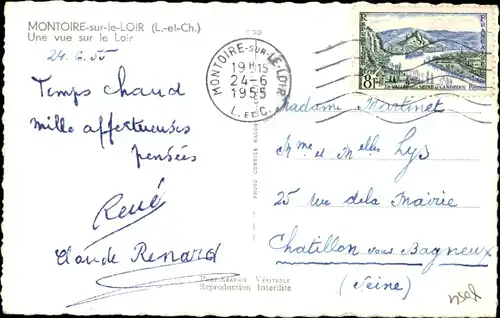 MONTOIRE-sur-le-LOIR (L.-et-Ch.)
Une vue sur le Loir
24.6.55
Temps chaud
mille affectueuses
pensées
René
Claude Renard
PHOTO COMBIER MACON
PHOTOGRAPHIE VÉRITABLE
Reproduction Interdite
MONTOIRE-SUR-LE-LOIR
19H15
24-6
1955
L. ET C.
8F
Madame Martinet
Mme et Melles Lys
25 rue de la Mairie
Chatillon sous Bagneux
(Seine)